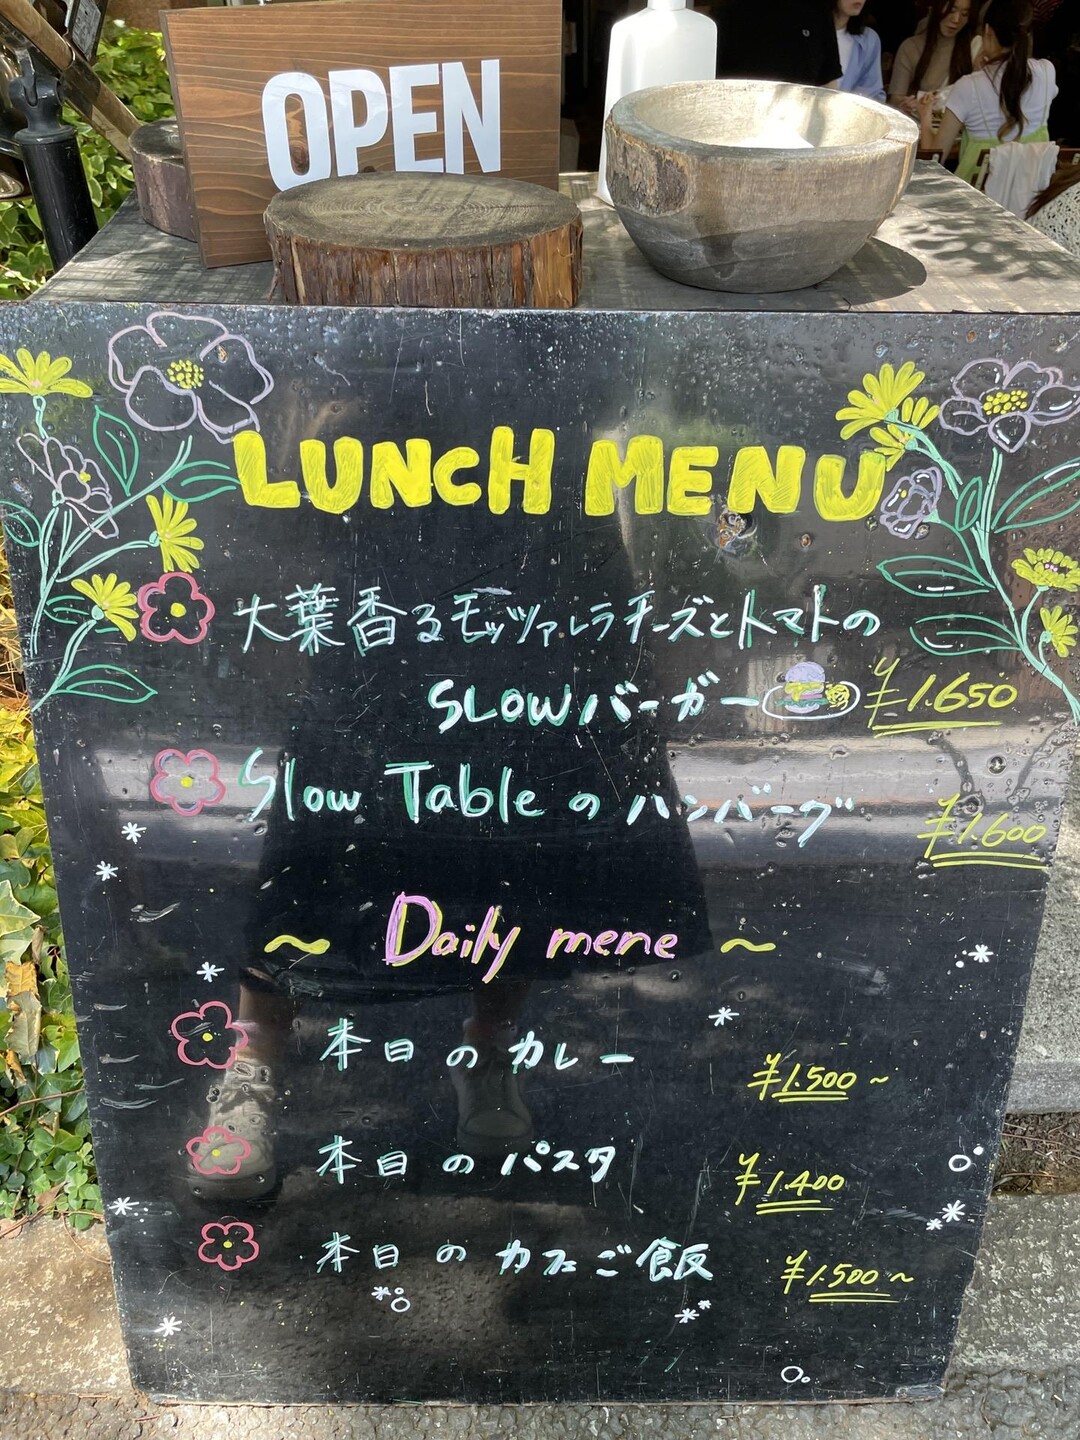 OPEN
LUNCH MENU
大葉香るモッツァレラチーズとトマトの
SLOWバーガー ¥1.650
Slow Table の ハンバーグ ¥1.600
~ Daily mene ~
本日のカレー ¥1.500~
本日のパスタ ¥1.400
本日のカフェご飯 ¥1.500~